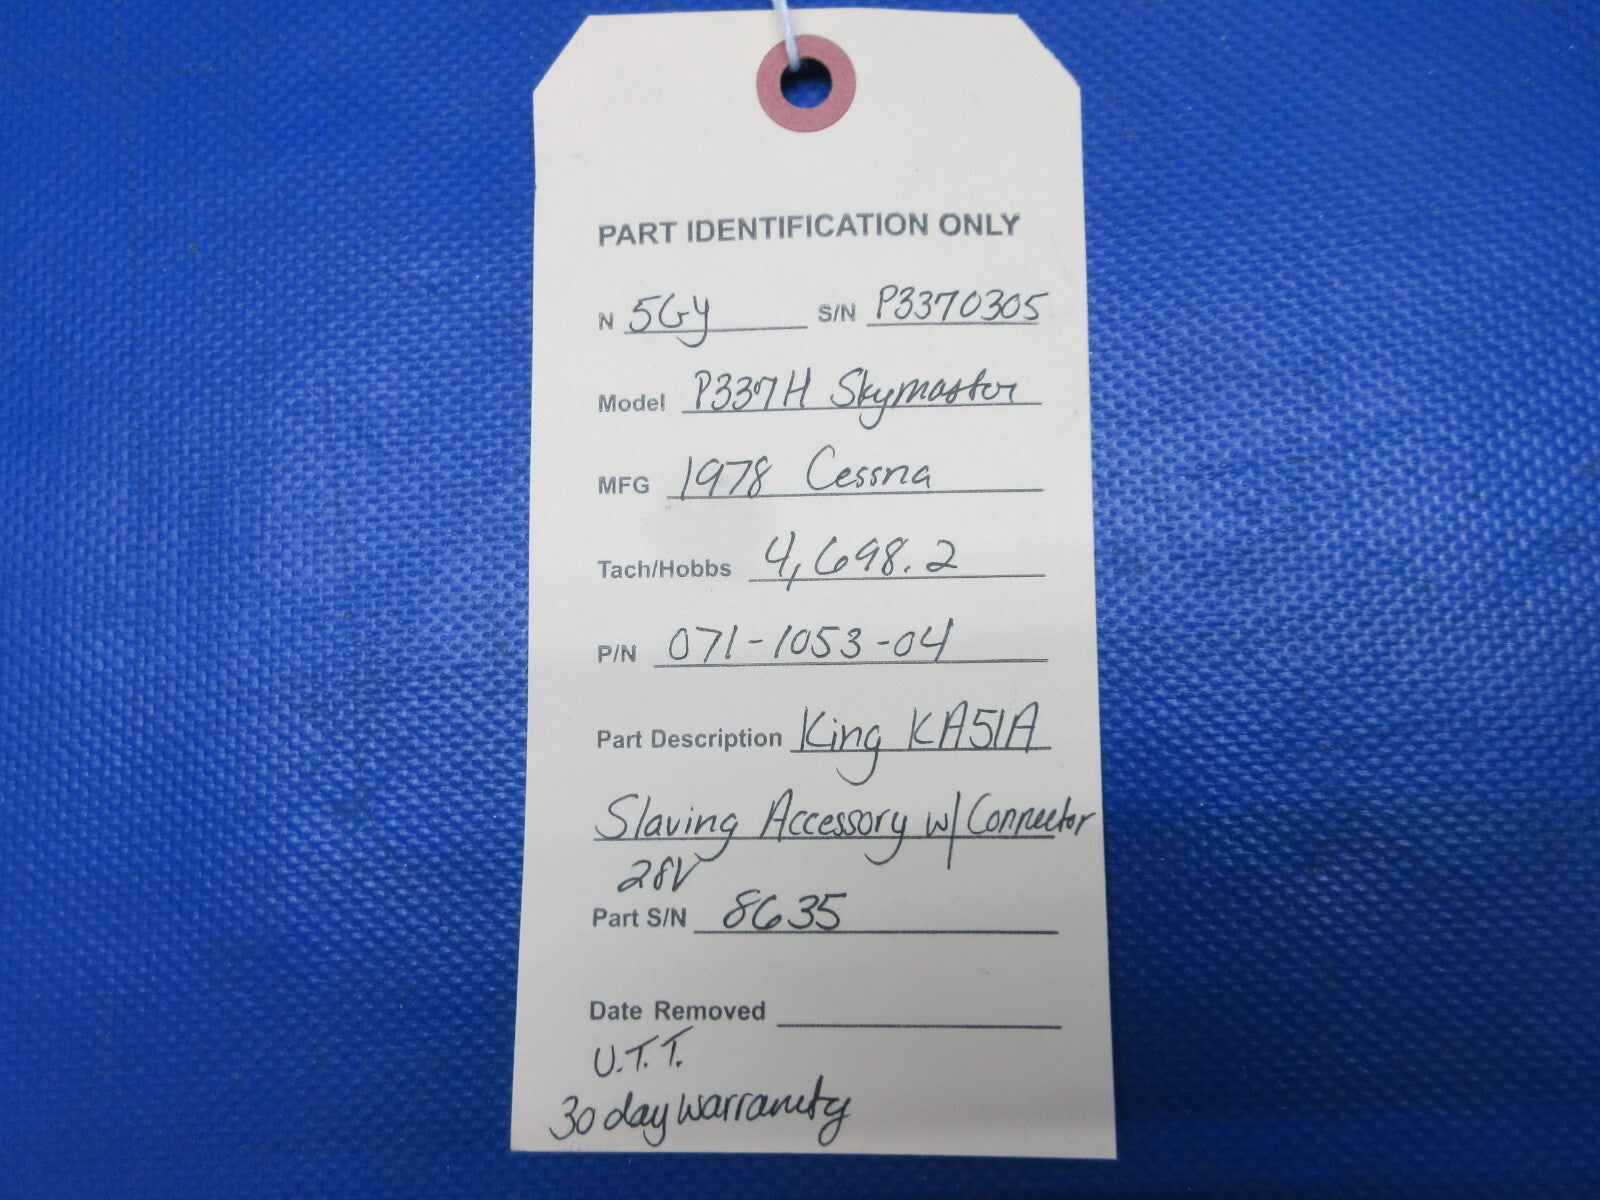 PART IDENTIFICATION ONLY
N 5GY S/N P3370305
Model P337H Skymaster
MFG 1978 Cessna
Tach/Hobbs 4,698.2
P/N 071-1053-04
Part Description King KA51A
Slaving Accessory w/ Connector
28V
Part S/N 8635
Date Removed
U.T.T.
30 day warranty